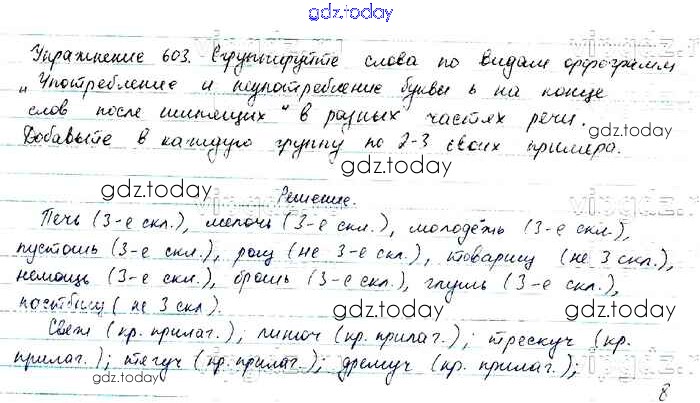 gdz.today
Упражнение 603. Сгруппируйте слова по видам орфограмм
„Употребление и неупотребление буквы ь на конце
слов после шипящих" в разных частях речи.
gdz.today
Добавьте в каждую группу по 2-3 своих примера.
gdz.today
gdz.today
Решение.
Печь (3-е скл.), мелочь (3-е скл.), молодёжь (3-е скл.),
пустошь (3-е скл.), рощ (не 3-е скл.), товарищ (не 3 скл.),
немощь (3-е скл.), брошь (3-е скл.), глушь (3-е скл.),
пастбищ (не 3 скл.).
gdz.today
gdz.today
Свеж (кр. прилаг.); пахуч (кр. прилаг.); трескуч (кр.
прилаг.); тягуч (кр. прилаг.); дремуч (кр. прилаг.);
gdz.today
gdz.today
8